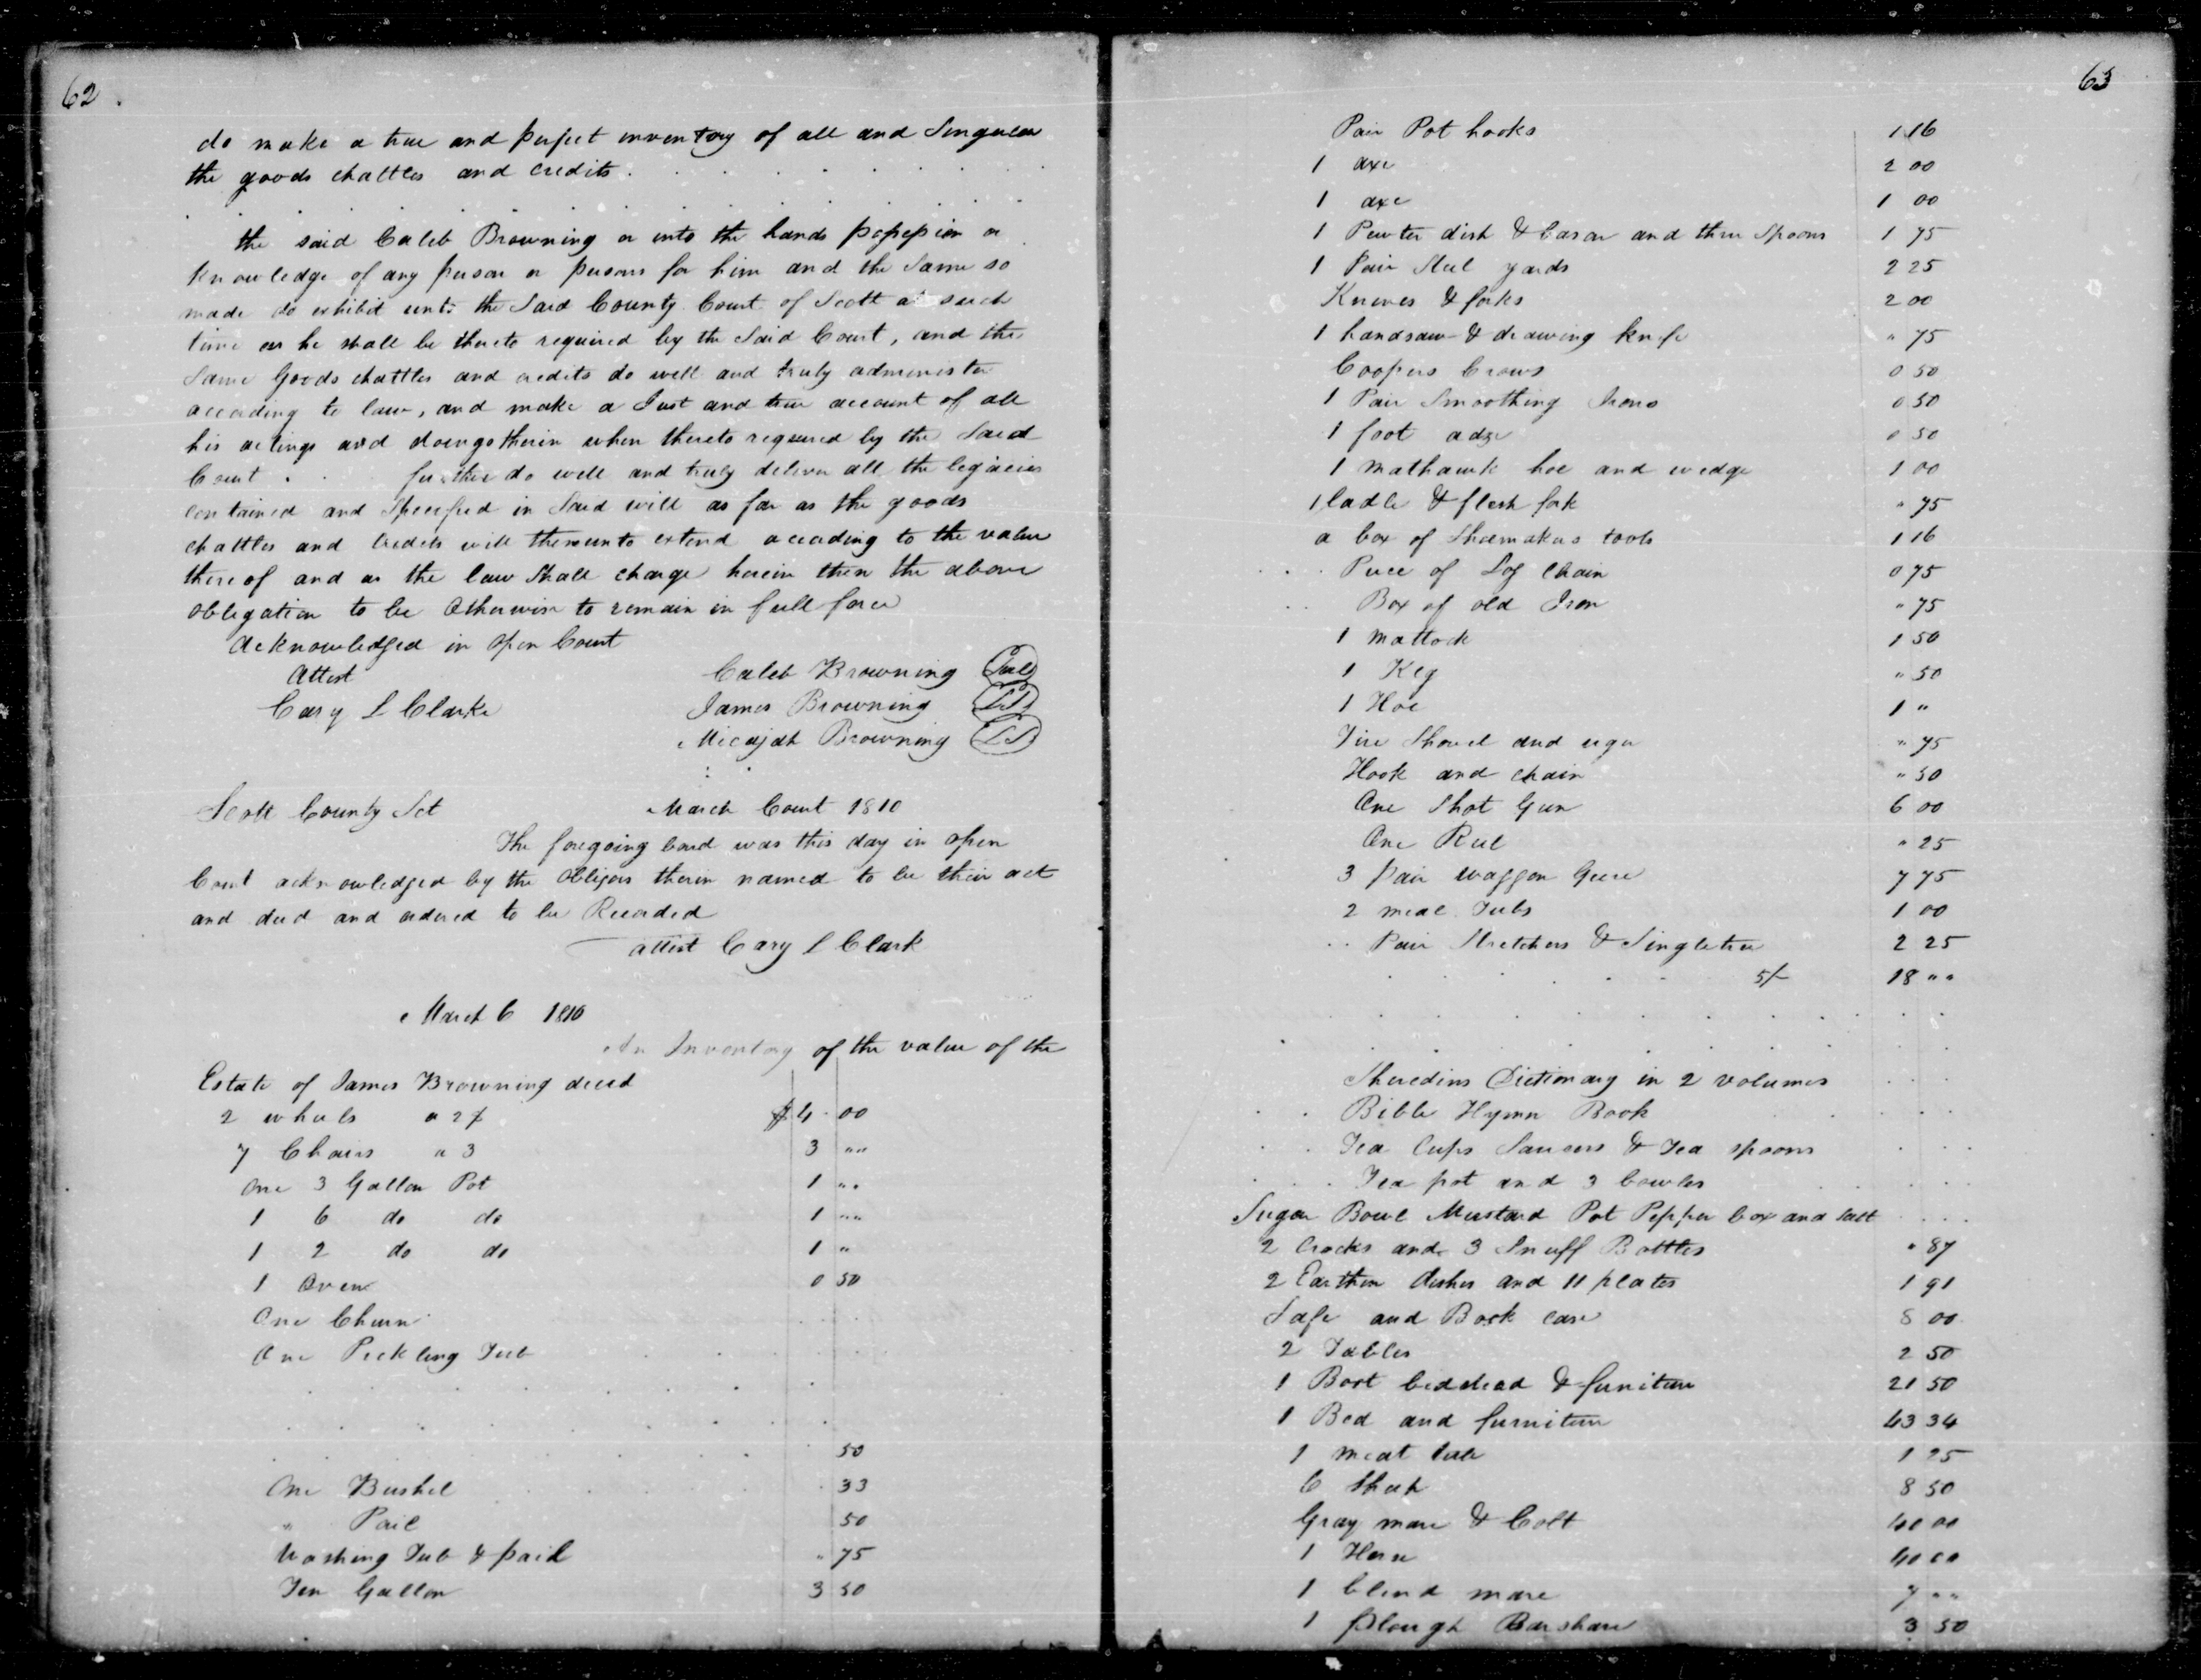 62.
do make a true and perfect inventory of all and Singular
the goods chattles and credits . . . . . . . .
. . . . . . . . . .
the said Caleb Browning or into the hands possession or
Knowledge of any person or persons for him and the Same so
made do exhibit unto the Said County Court of Scott at such
time as he shall be thereto required by the Said Court, and the
Same Goods chattles and credits do well and truly administer
according to law, and make a Just and true account of all
his actings and doings therein when thereto required by the Said
Court . . further do well and truly deliver all the legacies
contained and Specified in Said will as far as the goods
chattles and Credits will thereunto extend according to the value
thereof and as the law Shall charge herein then the above
obligation to be Otherwise to remain in full force
Acknowledged in open Court
Attest Caleb Browning Seal
Cary L Clarke James Browning LS
Micajah Browning LS
Scott County Sct March Court 1810
The foregoing bond was this day in open
Court acknowledged by the Obligors therin named to be their act
and deed and ordered to be Recorded
attest Cary L Clark
March 6 1810
An Inventory of the value of the
Estate of James Browning decd
2 wheels a 2$ $4 00
7 Chairs a 3 3 ""
One 3 Gallon Pot 1 ""
1 6 do do 1 ""
1 2 do do 1 "
1 Oven 0 50
One Churn
One Pickling Tub
50
One Bushel 33
" Pail 50
Washing Tub & pail " 75
Ten Gallon 3 50
63
Pair Pot hooks 1 16
1 axe 2 00
1 axe 1 00
1 Pewter dish & bason and three Spoons 1 75
1 Pair Steel yards 2 25
Knives & forks 2 00
1 handsaw & drawing knife " 75
Coopers Crows 0 50
1 Pair Smoothing Irons 0 50
1 foot adze 0 50
1 Mathawk hoe and wedge 1 00
1 ladle & flesh fork " 75
a box of Shoemakers tools 1 16
. . . Piece of Log Chain 0 75
. . Box of old Iron " 75
1 Mattock 1 50
1 Keg " 50
1 Hoe 1 "
Fire Shovel and " 75
Hook and chain " 50
One Shot Gun 6 00
One Reel " 25
3 pair waggon Geers 7 75
2 meal Tubs 1 00
. . Pair Stretchers & Singletree 2 25
5/- 18 ""
Sheredins Dictionary in 2 volumes . . .
. . Bible Hymn Book . . .
. . Tea Cups Saucers & Tea spoons . . .
. . . Tea pot and 3 bowles . . .
Sugar Bowl Mustard Pot Pepper box and salt . . . .
2 Crocks and 3 Snuff Bottles " 87
2 Earthen dishes and 11 plates 1 91
Safe and Book case 8 00
2 Tables 2 50
1 Bort bedstead & furniture 21 50
1 Bed and furniture 43 34
1 meat tub 1 25
6 Sheep 8 50
Gray mare & Colt 40 00
1 Horse 40 00
1 blind mare 7 ""
1 plough Barshare 3 50